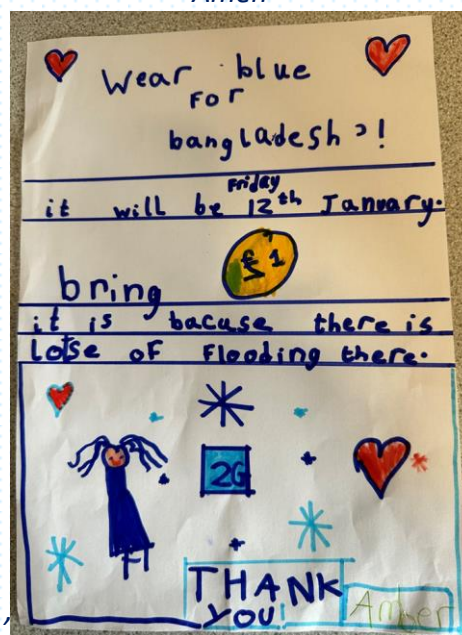 Amen
Wear blue
FOR
bangladesh !
Friday
it will be 12th January.
£1
bring
it is bacuse there is
lotse of Flooding there.
2G
THANK
YOU!
Amber
,